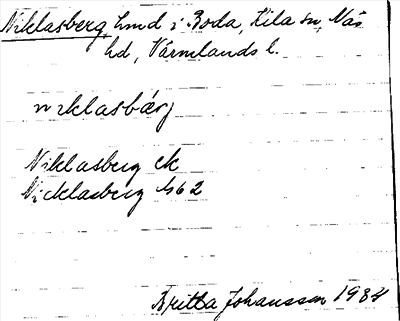 Niklasberg, hmd i Boda, Kila sn, Näs
hd, Värmlands l.
niklasbärj
Niklasberg ek
Nicklasberg 1862
Britta Johansson 1934